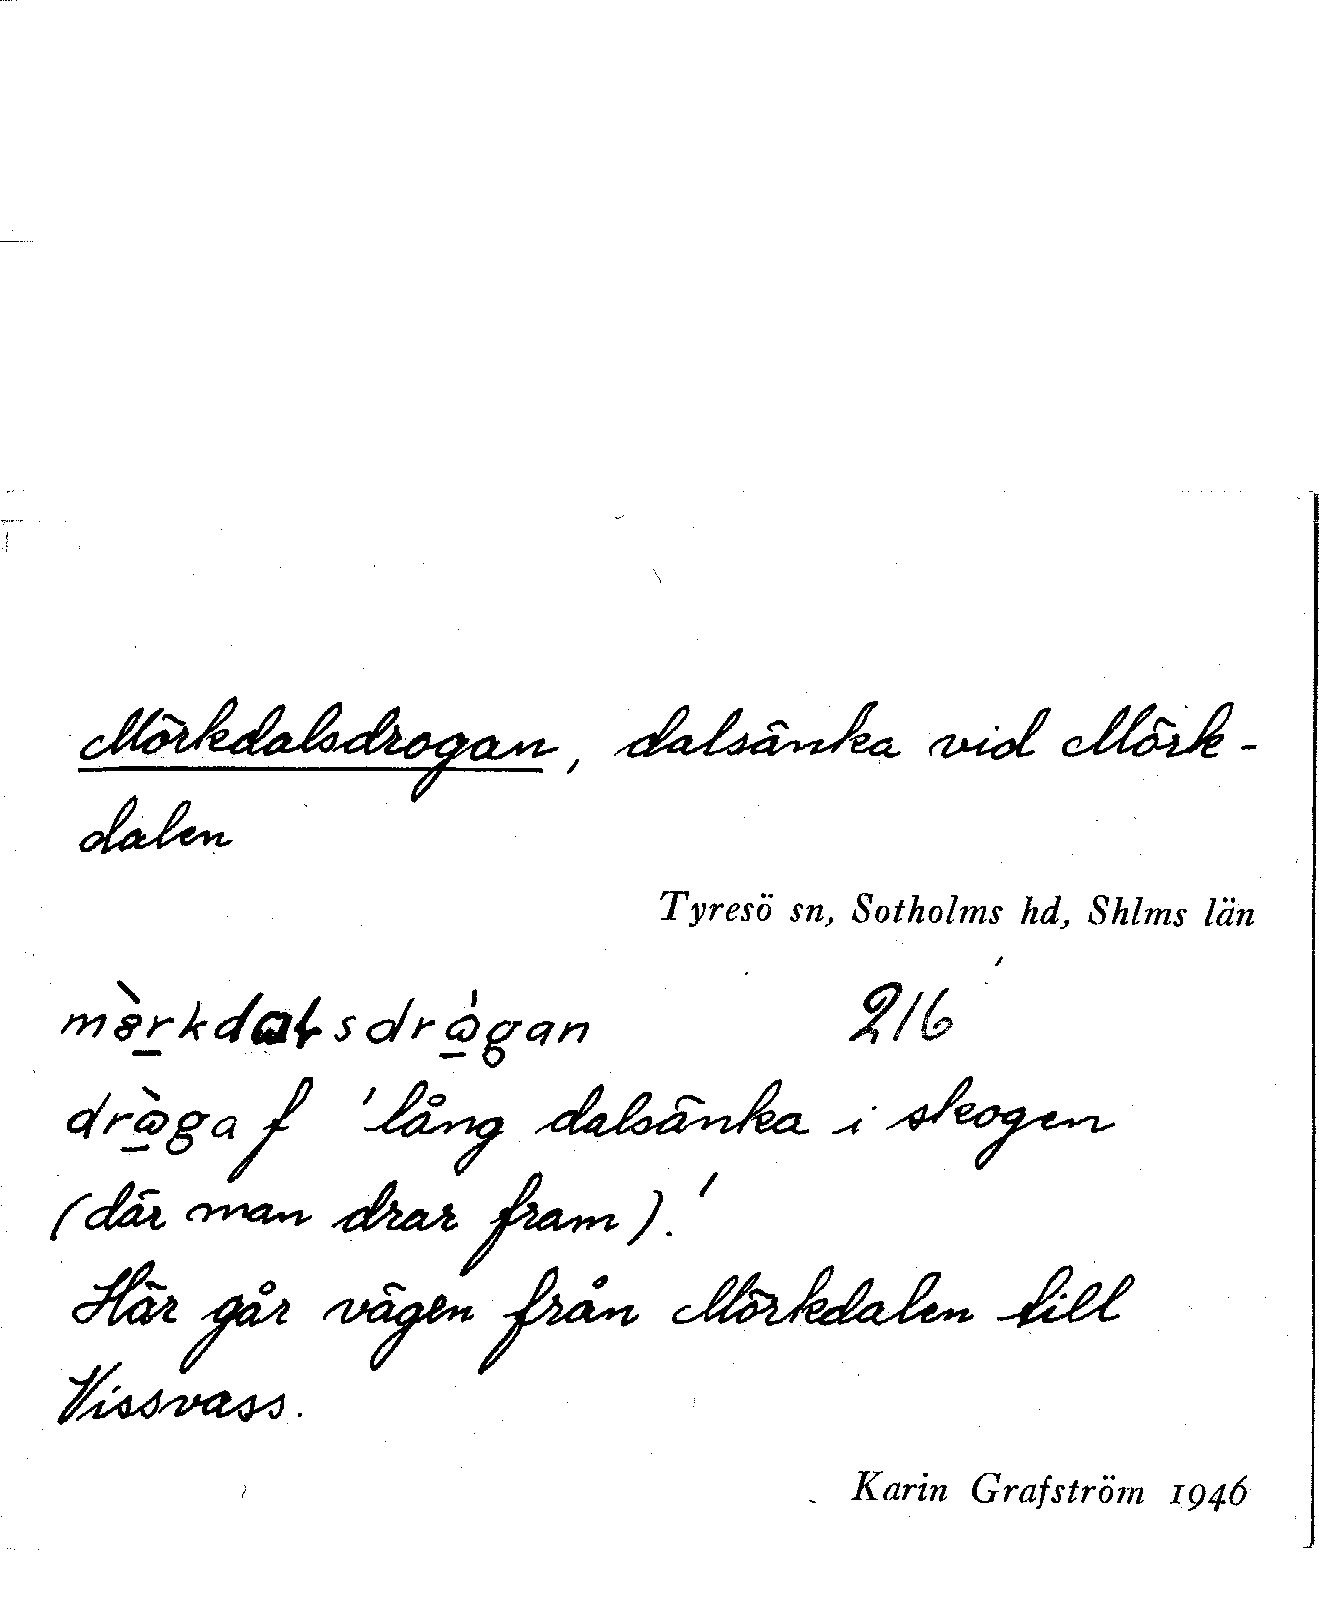 Mörkdalsdrogan, dalsänka vid Mörk-
dalen
Tyresö sn, Sotholms hd, Shlms län
216
f 'lång dalsänka i skogen
(där man drar fram).'
Här går vägen från Mörkdalen till
Vissvass.
Karin Grafström 1946